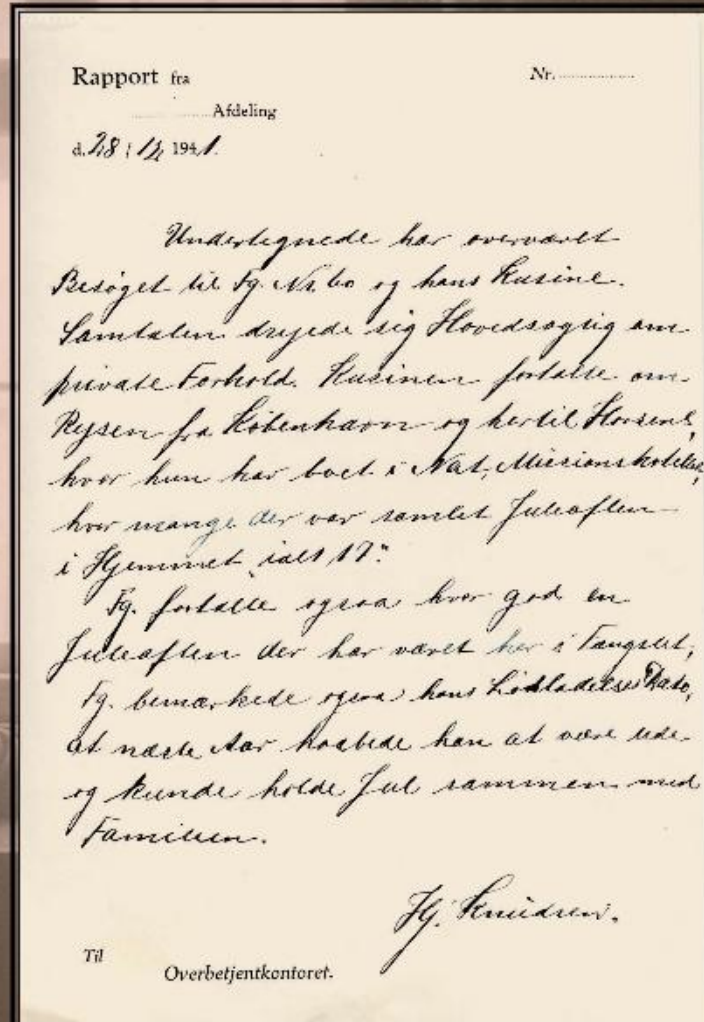 Rapport fra
Nr.
Afdeling
d. 28/12 1941.
Undertegnede har overværet
Besøget til Fg. Nr. 60 og hans Kusine.
Samtalen drejede sig Hovedsagsig om
private Forhold. Kusinen fortalte om
Rejsen fra København og hertil Horsens,
hvor hun har boet i Nat, Missionshotellet,
hvor mange der var samlet Juleaften
i Hjemmet "ialt 17".
Fg. fortalte ogsaa hvor god en
Juleaften der har været her i Fængslet,
Fg. bemærkede ogsaa hans Løsladelses Dato,
at næste Aar haabede han at være ude
og kunde holde Jul sammen med
Familien.
Hj. Knudsen.
Til
Overbetjentkontoret.